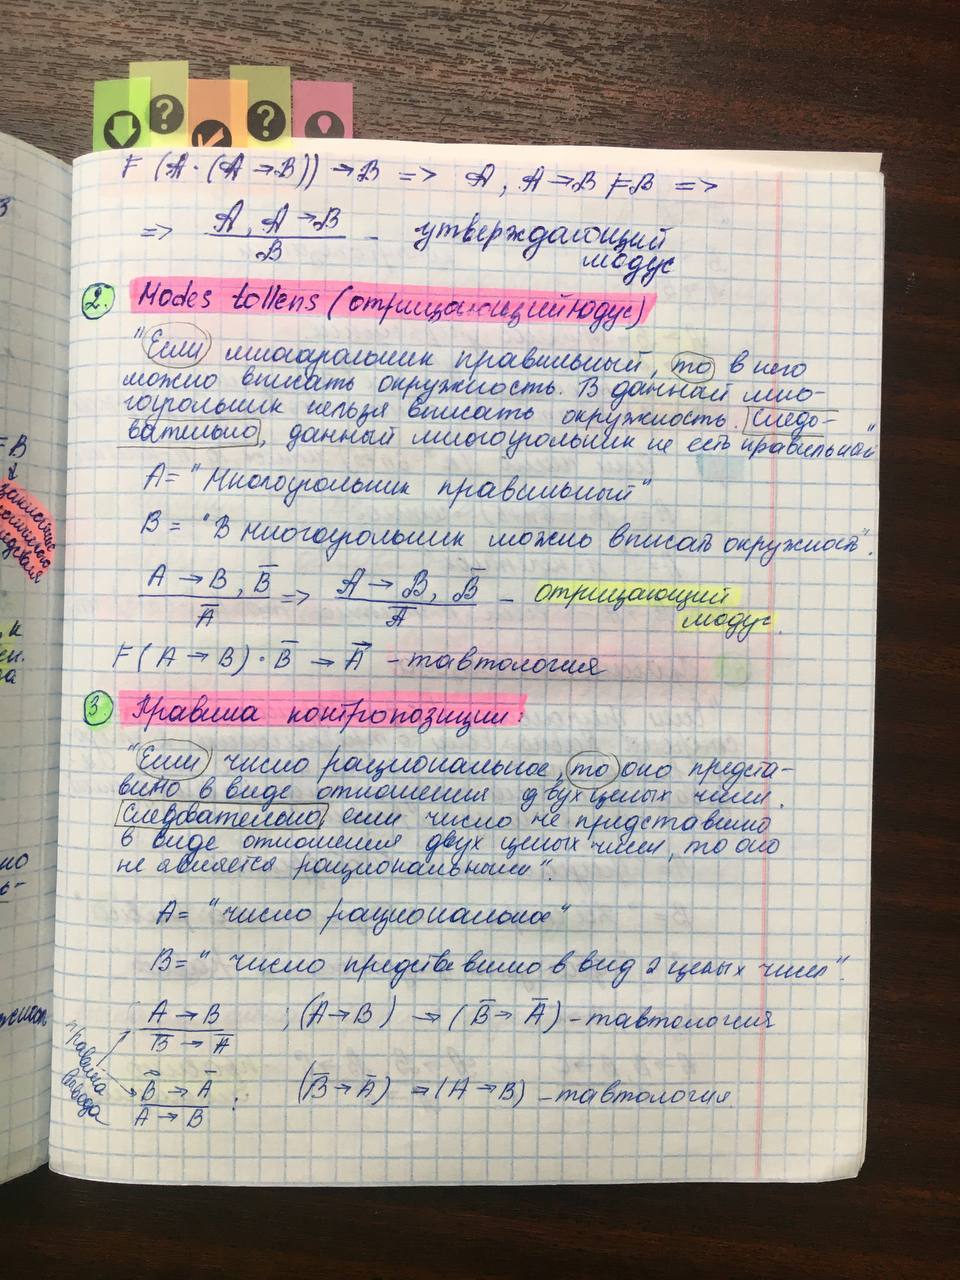 ⊨ (A·(A→B))→B => A, A→B ⊨ B =>
=> A, A→B / B - утверждающий
модус
2. Modes tollens (отрицающий модус)
"Если многоугольник правильный, то в него
можно вписать окружность. В данный мно-
гоугольник нельзя вписать окружность. Следо-
вательно, данный многоугольник не есть правильный"
A = "Многоугольник правильный"
B = "В многоугольник можно вписать окружность".
A→B, B̅ / A̅ => A→B, B̅ / A̅ - отрицающий
модус.
⊨ (A→B)·B̅ → A̅ - тавтология
3. Правила контрпозиции:
"Если число рациональное, то оно предста-
вимо в виде отношения двух целых чисел.
Следовательно, если число не представимо
в виде отношения двух целых чисел, то оно
не является рациональным".
A = "число рациональное"
B = "число представимо в вид 2 целых чисел".
A→B / B̅→A̅ ; (A→B) → (B̅→A̅) - тавтология
правила
вывода
B̅→A̅ / A→B ; (B̅→A̅) → (A→B) - тавтология.